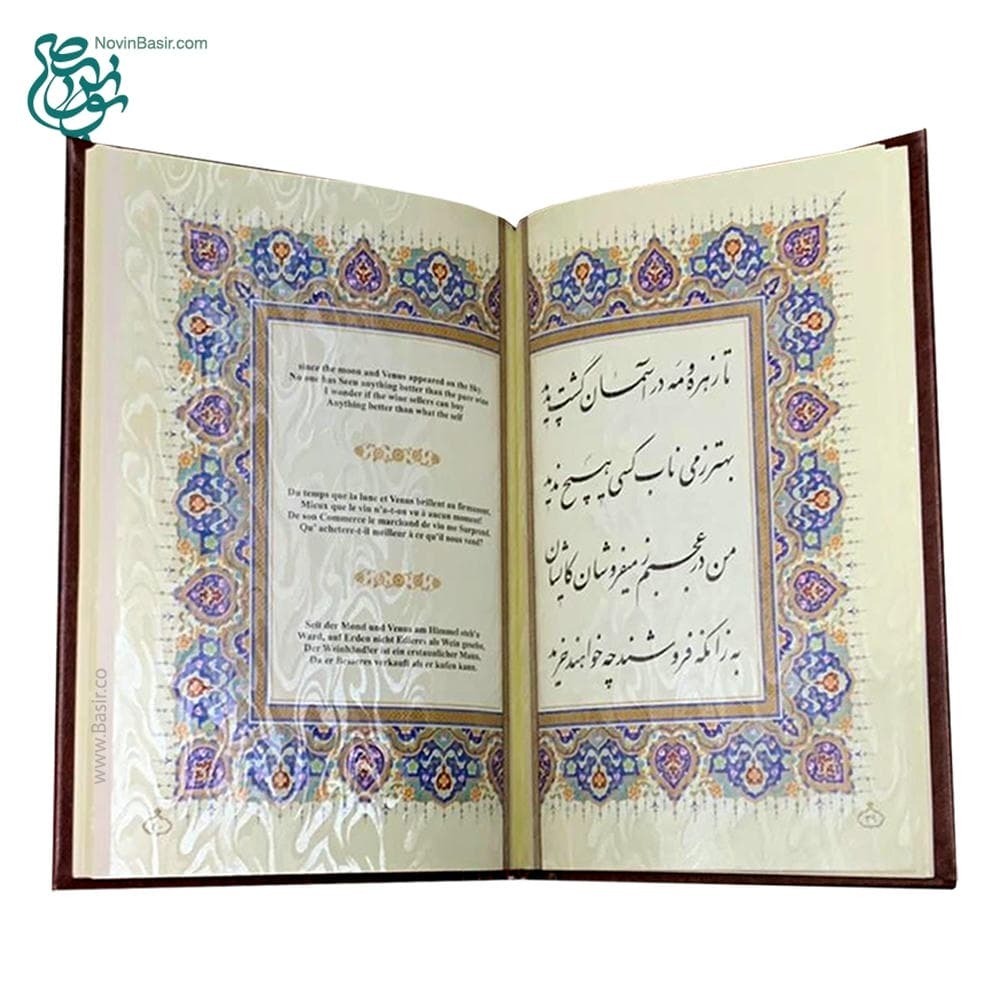 NovinBasir.com
تا زهره و مه در آسمان گشت پدید
بهتر ز می ناب کسی هیچ ندید
من در عجبم ز میفروشان کایشان
به زانکه فروشند چه خواهند خرید
since the moon and Venus appeared on the Sky.
No one has Seen anything better than the pure wine
I wonder if the wine sellers can buy
Anything better than what the self
Du temps que la lune et Venus brillent au firmament,
Mieux que le vin n'a-t-on vu à aucun moment!
De son Commerce le marchand de vin me Surprend,
Qu' achetere-t-il meilleur à ce qu'il nous vend?
Seit der Mond und Venus am Himmel steh'n
Ward, auf Erden nicht Edleres als Wein gesehn,
Der Weinhändler ist ein erstaunlicher Mann,
Da er Besseres verkauft als er kufen kann.
www.Basir.co
۳۹